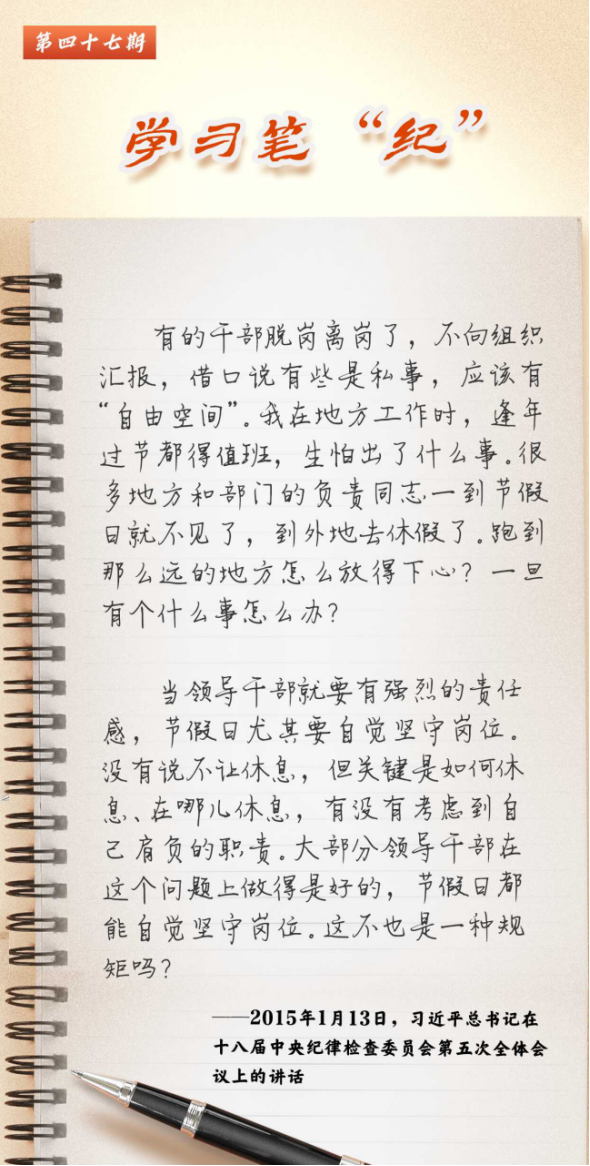 第四十七期
学习笔“纪”
有的干部脱岗离岗了，不向组织
汇报，借口说有些是私事，应该有
“自由空间”。我在地方工作时，逢年
过节都得值班，生怕出了什么事。很
多地方和部门的负责同志一到节假
日就不见了，到外地去休假了。跑到
那么远的地方怎么放得下心？一旦
有个什么事怎么办？
当领导干部就要有强烈的责任
感，节假日尤其要自觉坚守岗位。
没有说不让休息，但关键是如何休
息、在哪儿休息，有没有考虑到自
己肩负的职责。大部分领导干部在
这个问题上做得是好的，节假日都
能自觉坚守岗位。这不也是一种规
矩吗？
——2015年1月13日，习近平总书记在
十八届中央纪律检查委员会第五次全体会
议上的讲话